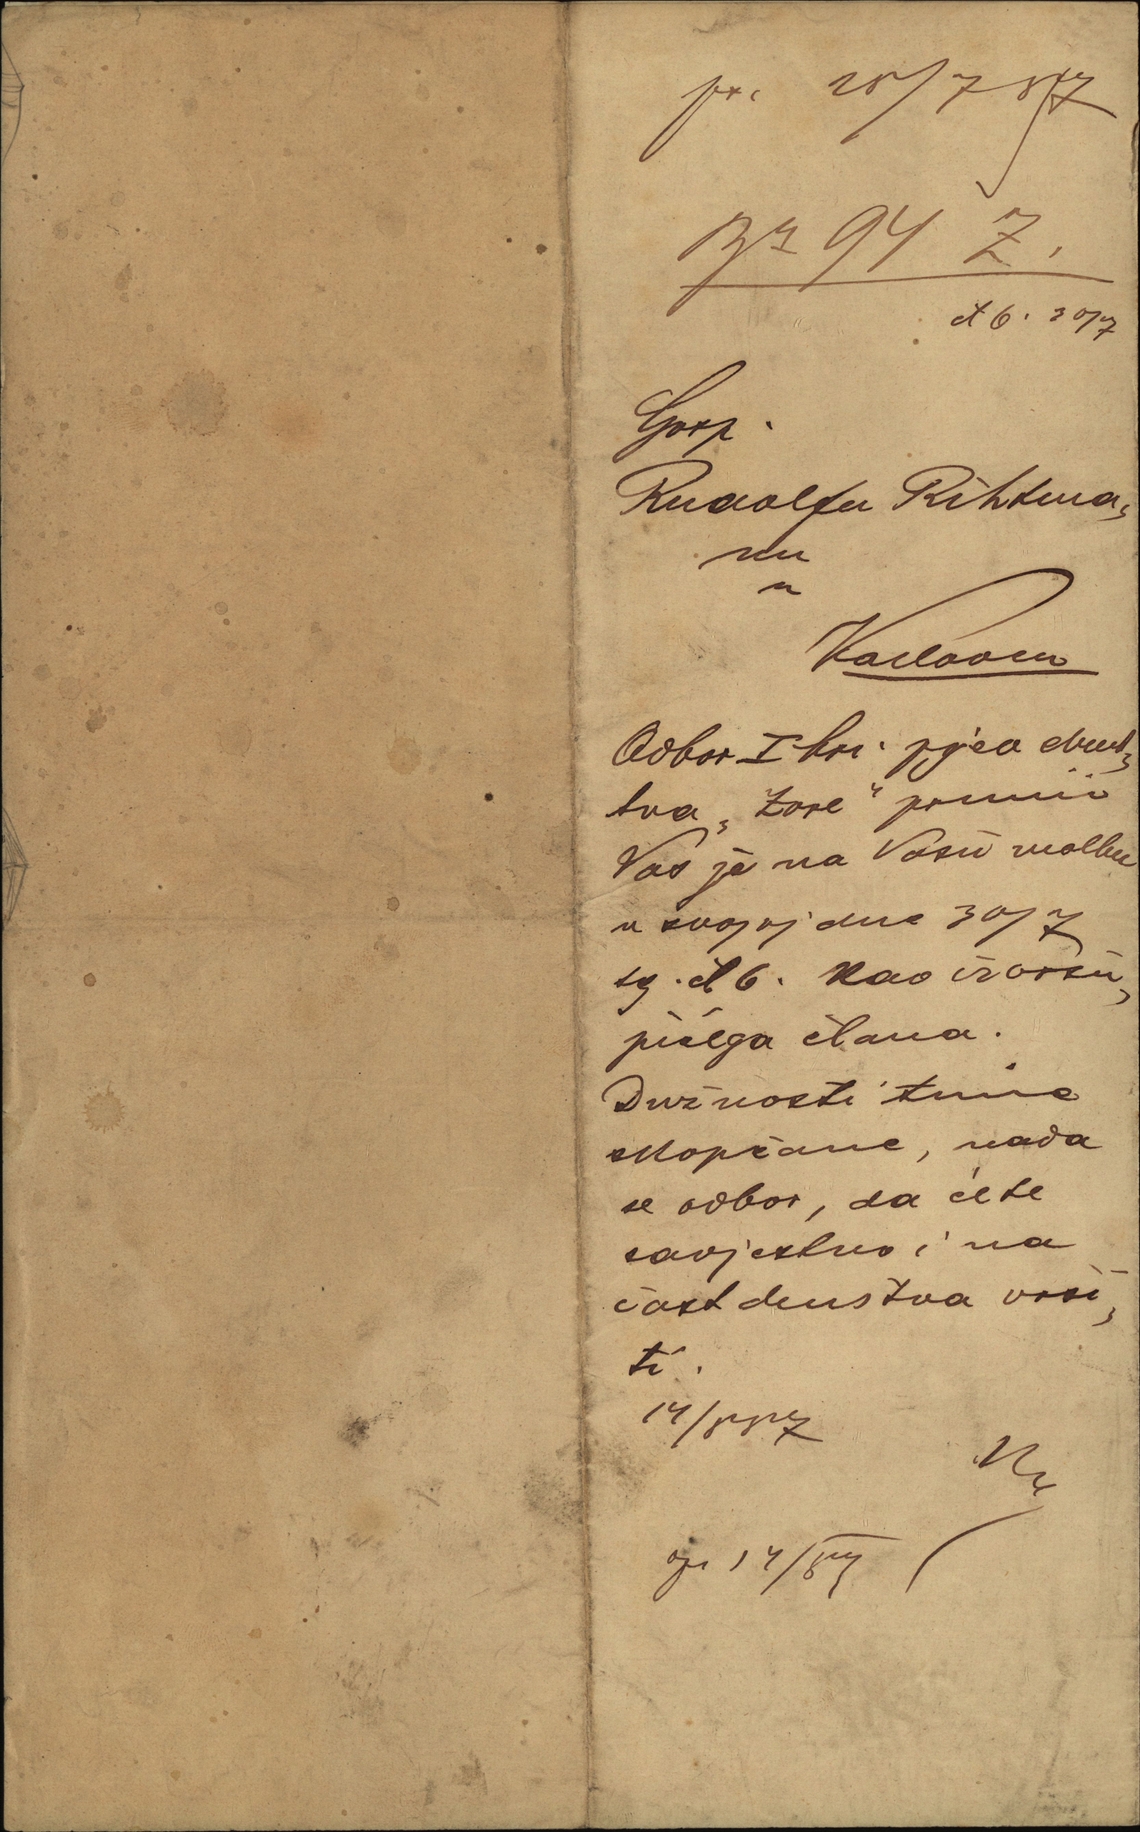 pr. 28/7 887
Br 94 Z.
čl 6. 30/7
Gosp.
Rudolfu Rihtma„
nu
u
Karlovcu
Odbor I hrv. pjev. družt„
tva „Zore" primio
Vas je na Vašu molbu
u svojoj dne 30/7
sg. čl 6. kao izvršu„
jućega člana.
Dužnosti s time
skopčane, nada
se odbor, da ćete
savjestno i na
čast družtva vrši„
ti.
14/8 887